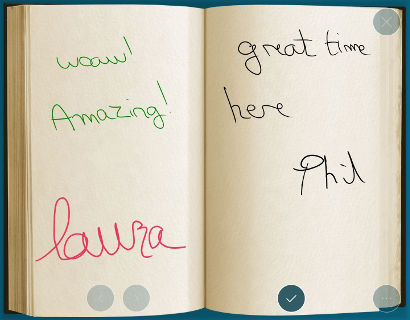 woaw!
Amazing!
laura
great time
here
Phil